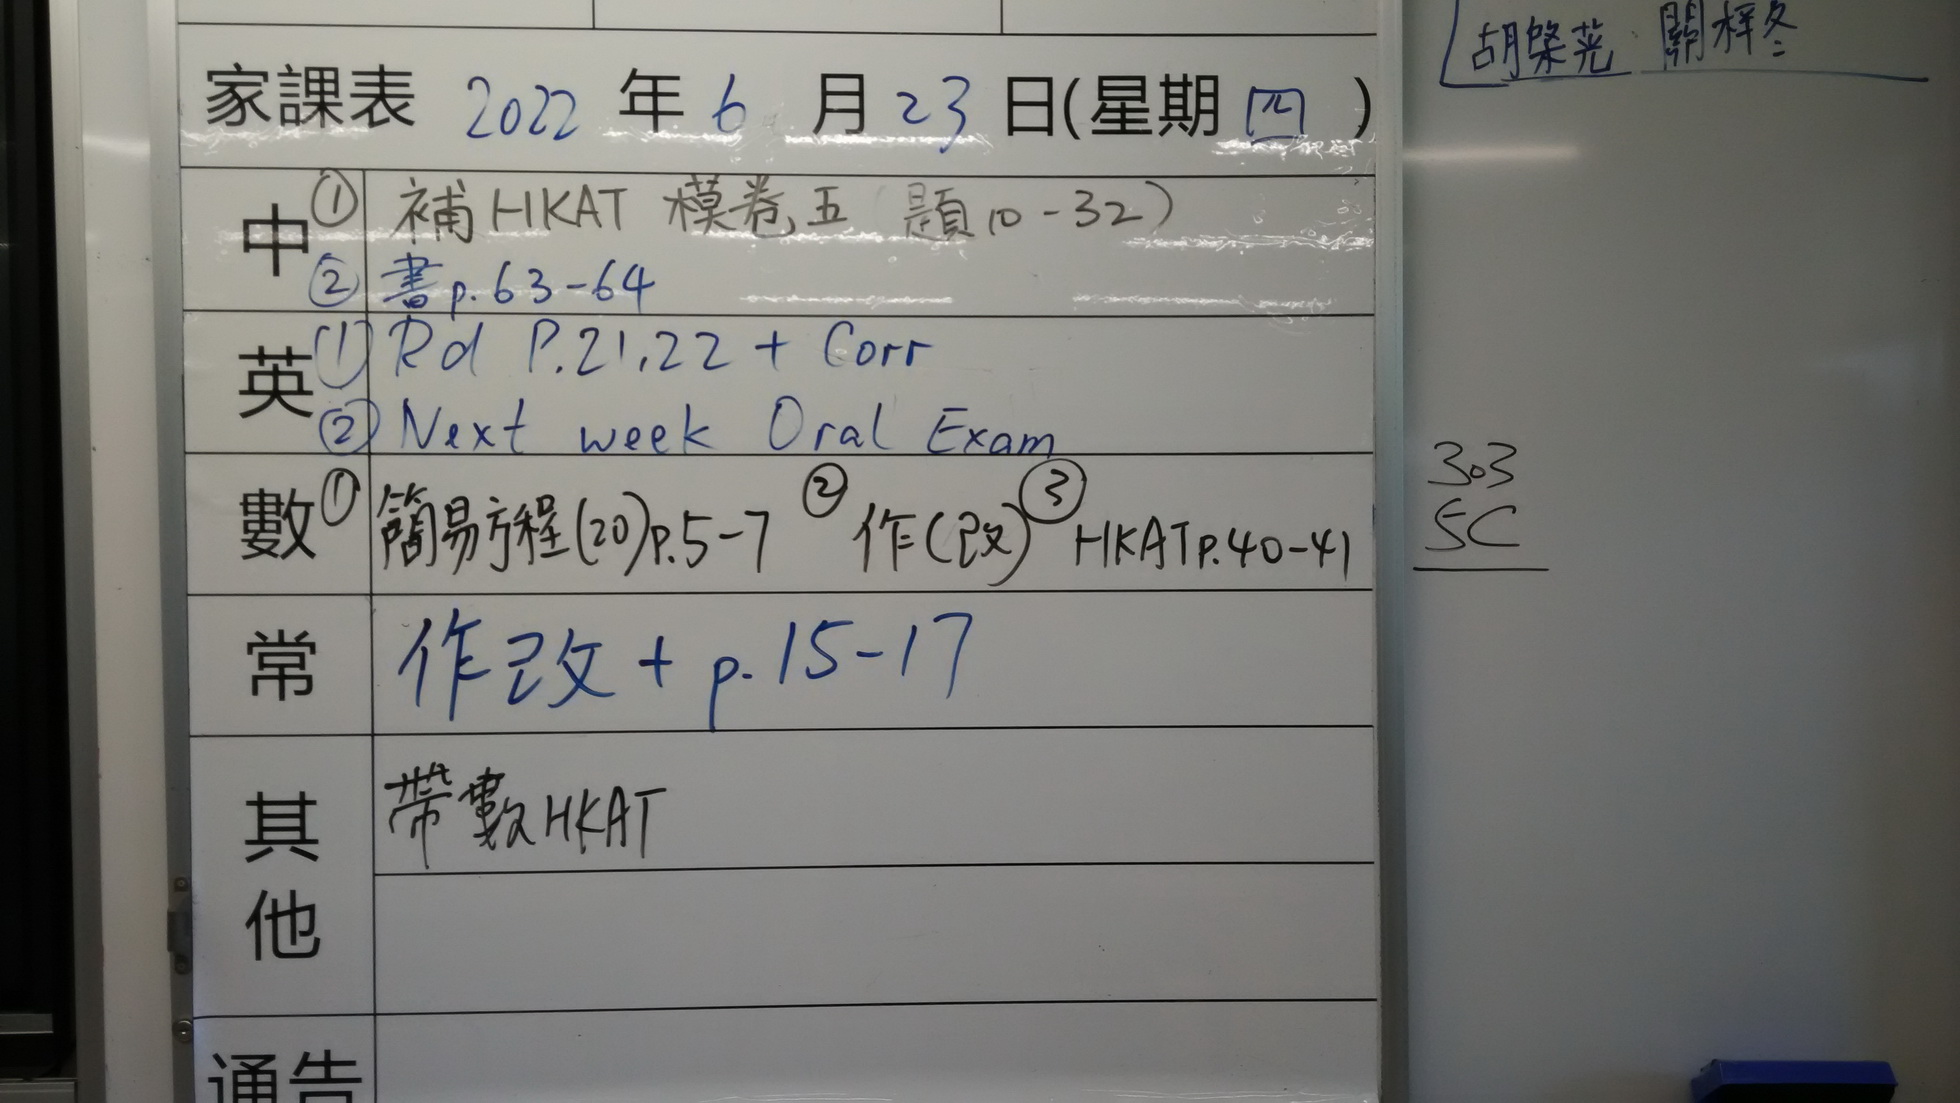 家課表 2022 年 6 月 23 日(星期 四 )
中 ① 補HKAT 模卷五 (題10-32)
② 書p.63-64
英 ① Rd P.21,22 + Corr
② Next week Oral Exam
數 ① 簡易方程(20)p.5-7 ② 作(改) ③ HKATp.40-41
常 作改 + p.15-17
其他 帶數HKAT
通告
303
5C